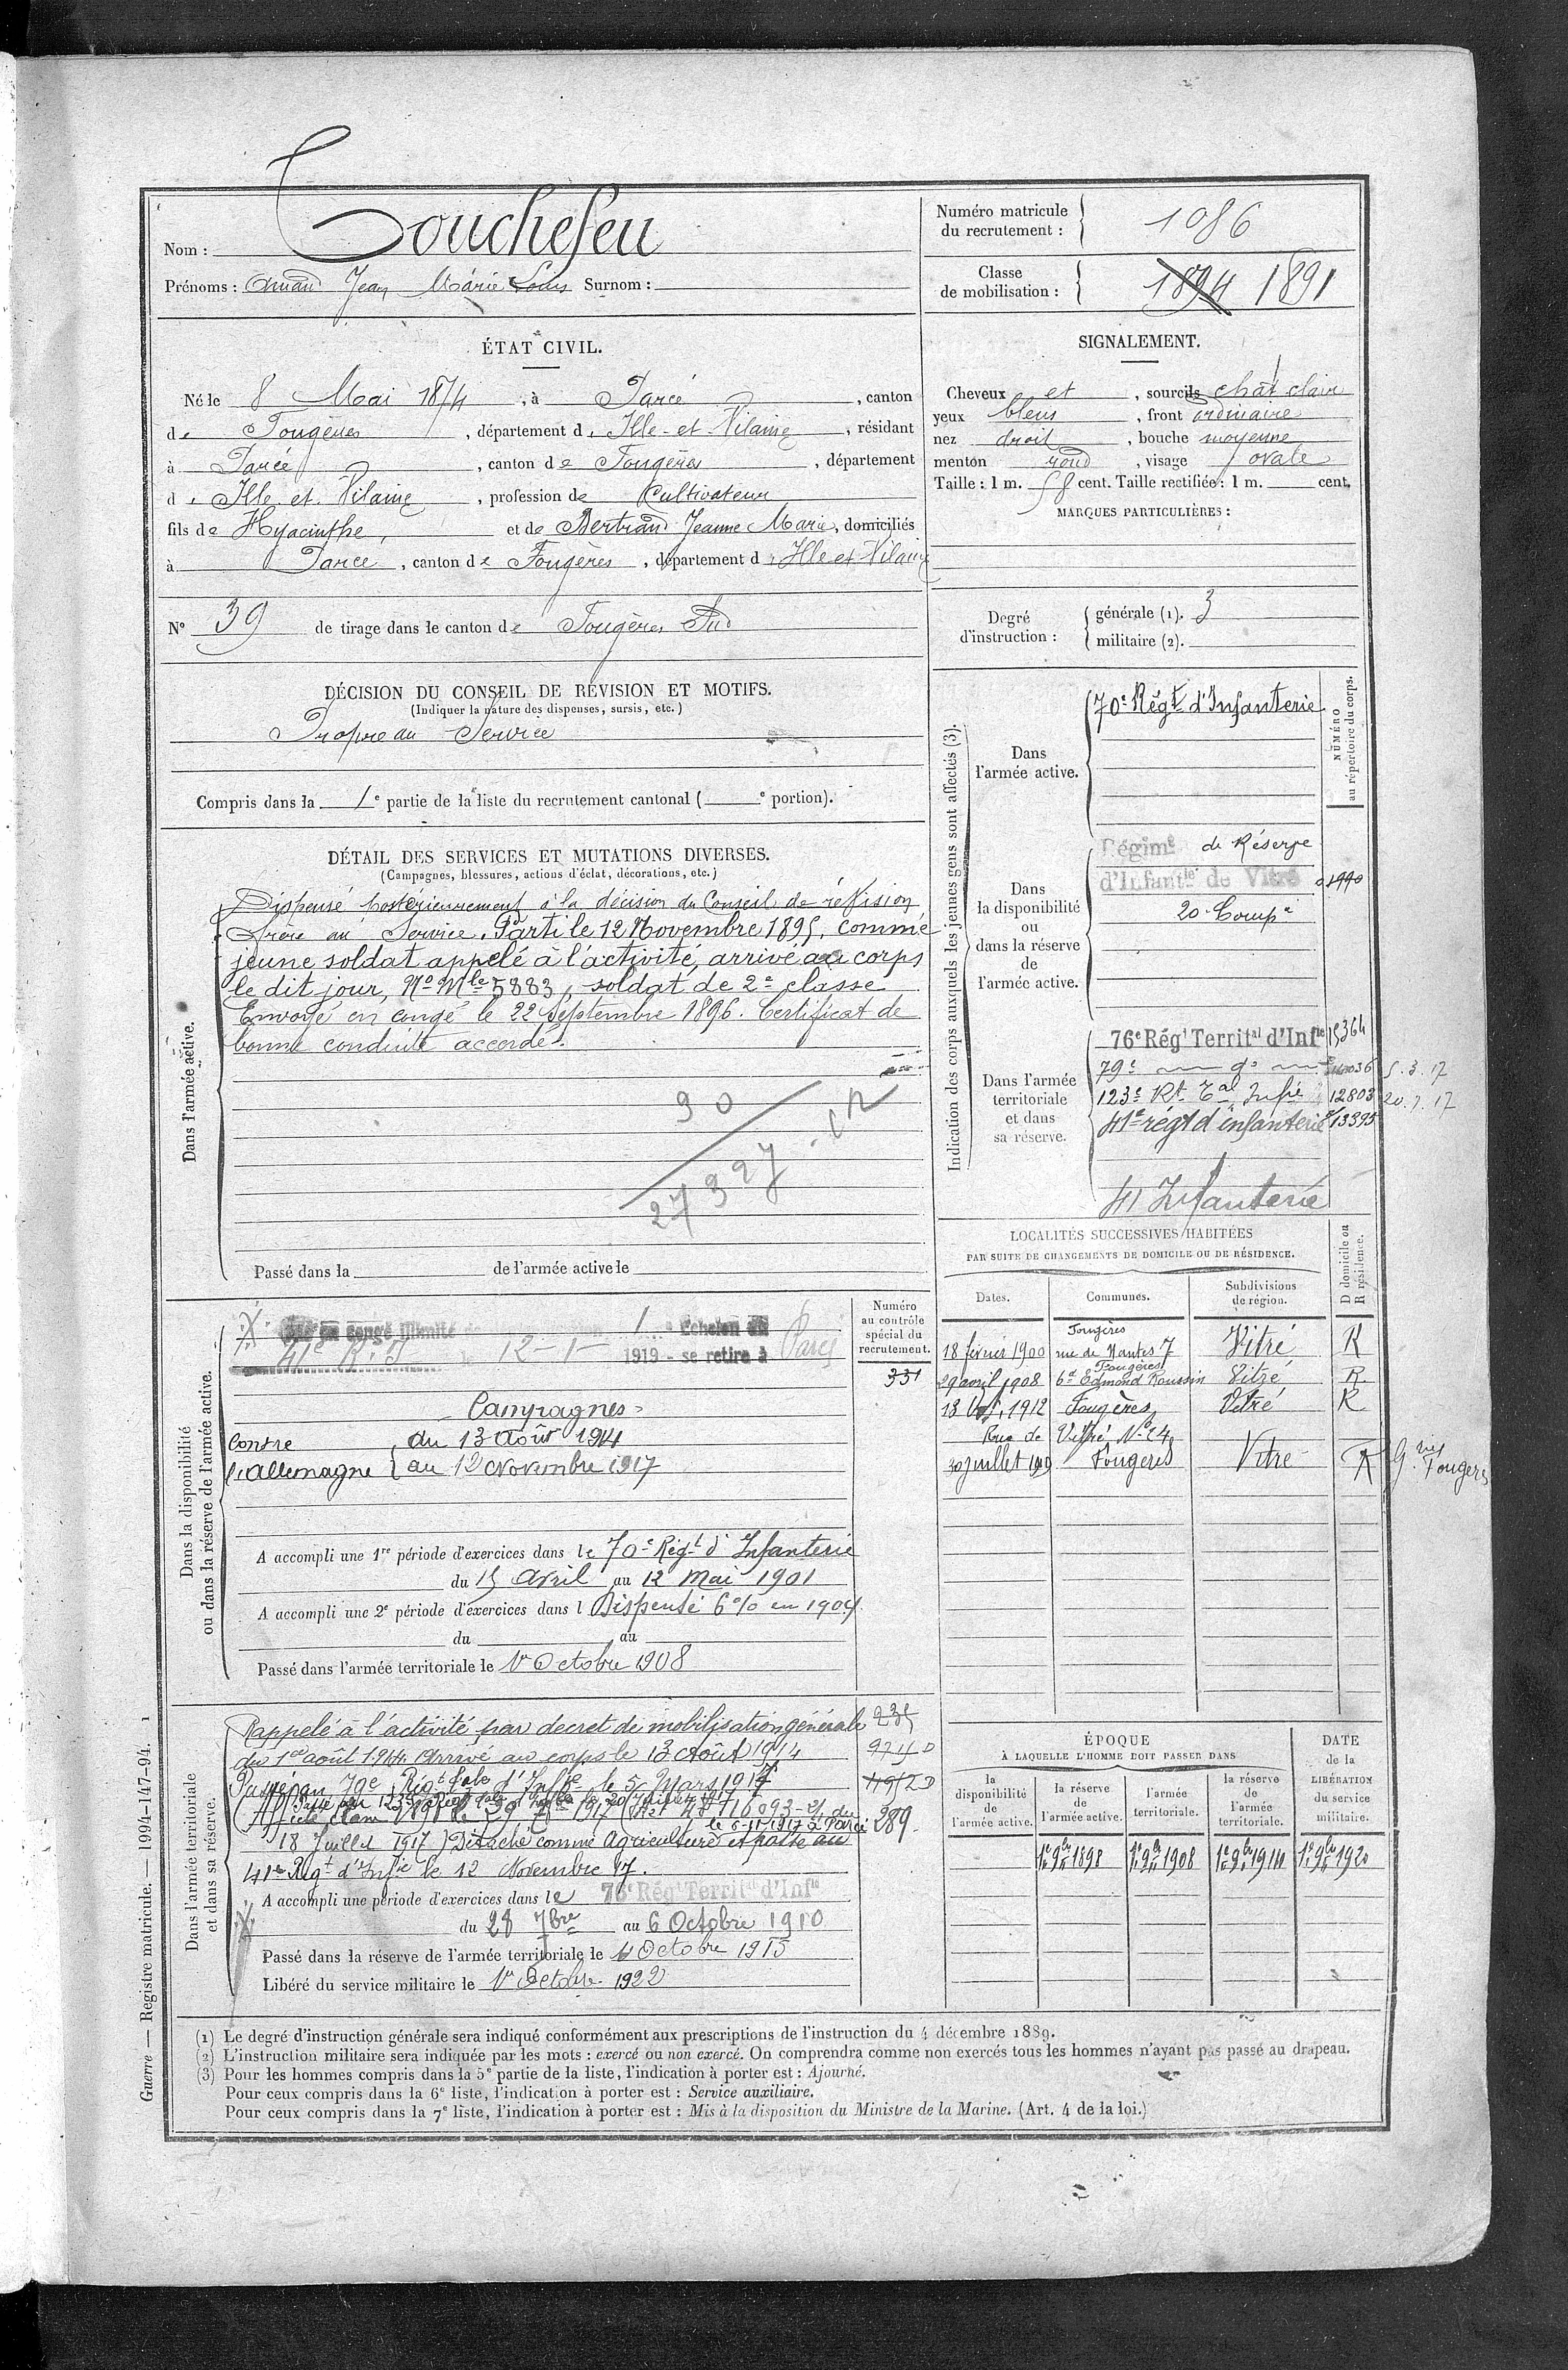 Nom : Touchefeu
Prénoms : Amand Jean Marie Louis Surnom :
Numéro matricule du recrutement : 1086
Classe de mobilisation : 1894 1891
ÉTAT CIVIL.
Né le 8 Mai 1874, à Parcé, canton
de Fougères, département d'Ille-et-Vilaine, résidant
à Parcé, canton de Fougères, département
d'Ille et Vilaine, profession de Cultivateur
fils de Hyacinthe, et de Bertrand Jeanne Marie, domiciliés
à Parcé, canton de Fougères, département d'Ille et Vilaine
N° 39 de tirage dans le canton de Fougères Sud
SIGNALEMENT.
Cheveux et, sourcils chât clair
yeux bleus, front ordinaire
nez droit, bouche moyenne
menton rond, visage ovale
Taille : 1 m. 58 cent. Taille rectifiée : 1 m. cent.
MARQUES PARTICULIÈRES :
Degré d'instruction : générale (1). 3
militaire (2).
DÉCISION DU CONSEIL DE RÉVISION ET MOTIFS.
(Indiquer la nature des dispenses, sursis, etc.)
Propre au Service
Compris dans la 1e partie de la liste du recrutement cantonal ( e portion).
DÉTAIL DES SERVICES ET MUTATIONS DIVERSES.
(Campagnes, blessures, actions d'éclat, décorations, etc.)
Dans l'armée active.
Dispensé postérieurement à la décision du Conseil de révision
frère au Service. Parti le 12 Novembre 1895, comme
jeune soldat appelé à l'activité, arrivé au corps
le dit jour, No Mle 5883, soldat de 2e classe
Envoyé en congé le 22 Septembre 1896. Certificat de
bonne conduite accordé.
90
27327
Passé dans la de l'armée active le
Indication des corps auxquels les jeunes gens sont affectés (3).
NUMÉRO au répertoire du corps.
Dans l'armée active.
70e Régt d'Infanterie
Dans la disponibilité ou dans la réserve de l'armée active.
Régimt de Réserve
d'Infantie de Vitré 1990
20e Compie
Dans l'armée territoriale et dans sa réserve.
76e Régt Territal d'Infie 15364
79e do 5.3.17
123e Rt Tal Infie 12803 20.7.17
41e régt d'infanterie 13395
41 Infanterie
LOCALITÉS SUCCESSIVES HABITÉES
PAR SUITE DE CHANGEMENTS DE DOMICILE OU DE RÉSIDENCE.
Dates. Communes. Subdivisions de région. D domicile ou R résidence.
18 février 1900 Fougères rue de Nantes 7 Vitré R
29 avril 1908 Fougères Bd Edmond Roussin Vitré R.
13 1912 Fougères, Vitré R
Rue de Vitré No 24
30 juillet 1919 Fougères Vitré R Gnes Fougères
Dans la disponibilité ou dans la réserve de l'armée active.
Numéro au contrôle spécial du recrutement.
congé illimité 1 Echelon
41e R.I. le 12-1-1919 - se retire à Parcé
331
Campagnes
Contre l'Allemagne du 13 Août 1914
au 12 Novembre 1917
A accompli une 1re période d'exercices dans le 70e Régt d'Infanterie
du 15 Avril au 12 Mai 1901
A accompli une 2e période d'exercices dans l Dispensé 6% en 1904
du au
Passé dans l'armée territoriale le 1er Octobre 1908
Dans l'armée territoriale et dans sa réserve.
Rappelé à l'activité par décret de mobilisation générale
du 1er août 1914. Arrivé au corps le 13 Août 1914
Passé au 79e Régt tal d'Infie le 5 Mars 1917
Passé au 123e Régt tal d'Infie le 20 Juillet 1917
18 Juillet 1917) Détaché comme Agriculteur le 6-11-1917 à Parcé et passe au
41e Régt d'Infie le 12 Novembre 17.
289.
A accompli une période d'exercices dans le 76e Régt Territal d'Infie
du 28 7bre au 6 Octobre 1910
Passé dans la réserve de l'armée territoriale le 1 Octobre 1915
Libéré du service militaire le 1er Octobre 1922
ÉPOQUE
À LAQUELLE L'HOMME DOIT PASSER DANS
la disponibilité de l'armée active. la réserve de l'armée active. l'armée territoriale. la réserve de l'armée territoriale.
DATE de la LIBÉRATION du service militaire.
1er 9bre 1898 1er 9bre 1908 1er 9bre 1914 1er 9bre 1920
(1) Le degré d'instruction générale sera indiqué conformément aux prescriptions de l'instruction du 4 décembre 1889.
(2) L'instruction militaire sera indiquée par les mots : exercé ou non exercé. On comprendra comme non exercés tous les hommes n'ayant pas passé au drapeau.
(3) Pour les hommes compris dans la 5e partie de la liste, l'indication à porter est : Ajourné.
Pour ceux compris dans la 6e liste, l'indication à porter est : Service auxiliaire.
Pour ceux compris dans la 7e liste, l'indication à porter est : Mis à la disposition du Ministre de la Marine. (Art. 4 de la loi.)
Guerre — Registre matricule. — 1994-147-94. 1